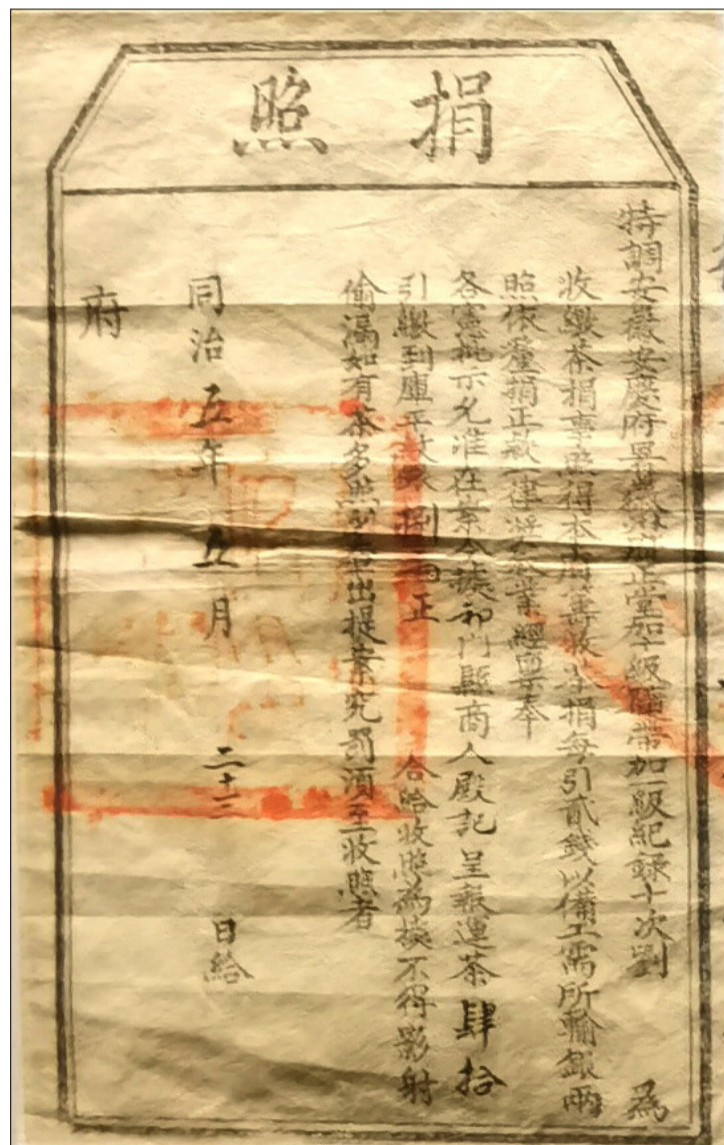 捐照
特調安徽安慶府正堂加十級隨帶加一級紀錄十次劉 為
收繳茶捐事照得本府籌收茶捐每引貳錢以備工需所輸銀兩
照依釐捐正款一律經稟奉
各憲批示允准在案今據祁門縣商人殿記呈報運茶肆拾
引繳到庫平紋銀捌兩正 合給收照為據不得影射
偷漏如有茶多照少查出提案究罰須至收照者
同治五年五月二十三日給
府